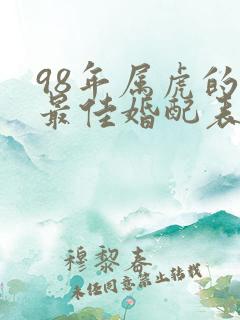 98年属虎的
最佳婚配表
穆黎春
未经同意禁止转载